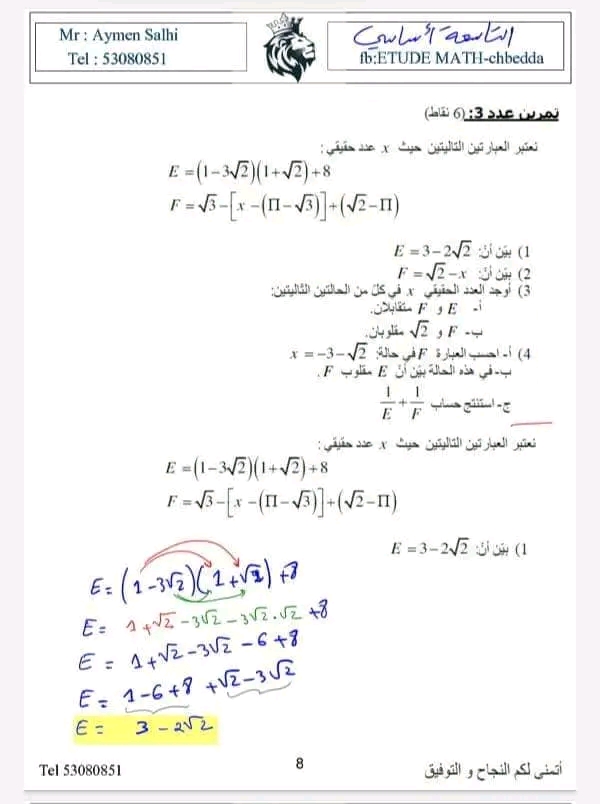 Mr : Aymen Salhi
Tel : 53080851
التاسعة أساسي
fb:ETUDE MATH-chbedda
تمرين عدد 3: (6 نقاط)
نعتبر العبارتين التاليتين حيث x عدد حقيقي:
E = (1−3√2)(1+√2)+8
F = √3−[x−(Π−√3)]+(√2−Π)
1) بيّن أنّ: E = 3−2√2
2) بيّن أنّ: F = √2−x
3) أوجد العدد الحقيقي x في كلّ من الحالتين التاليتين:
أ- E و F متقابلان.
ب- F و √2 مقلوبان.
4) أ- احسب العبارة F في حالة: x = −3−√2
ب- في هذه الحالة بيّن أنّ E مقلوب F.
ج- استنتج حساب 1/E + 1/F
نعتبر العبارتين التاليتين حيث x عدد حقيقي:
E = (1−3√2)(1+√2)+8
F = √3−[x−(Π−√3)]+(√2−Π)
1) بيّن أنّ: E = 3−2√2
E = (1−3√2)(1+√2)+8
E = 1+√2−3√2−3√2·√2+8
E = 1+√2−3√2−6+8
E = 1−6+8+√2−3√2
E = 3−2√2
Tel 53080851
8
أتمنى لكم النجاح و التوفيق